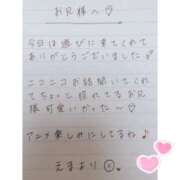 お兄様へ♡
今日は遊びに来てくれて
ありがとうございました♡
ニコニコお話聞いてくれ
てちょっと照れてるお兄
様可愛いかった〜♡
アニメ楽しみにしてるね♪
えまより